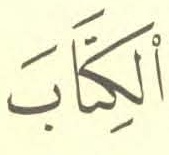 اْلكِتَابَ